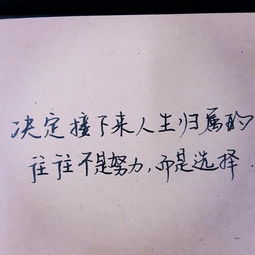 决定接下来人生归属的
往往不是努力,而是选择